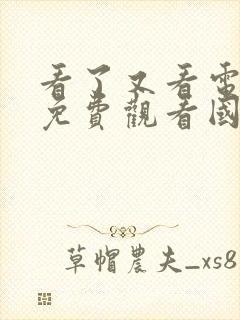 看了又看電
免費觀看國
草帽農夫_xs8